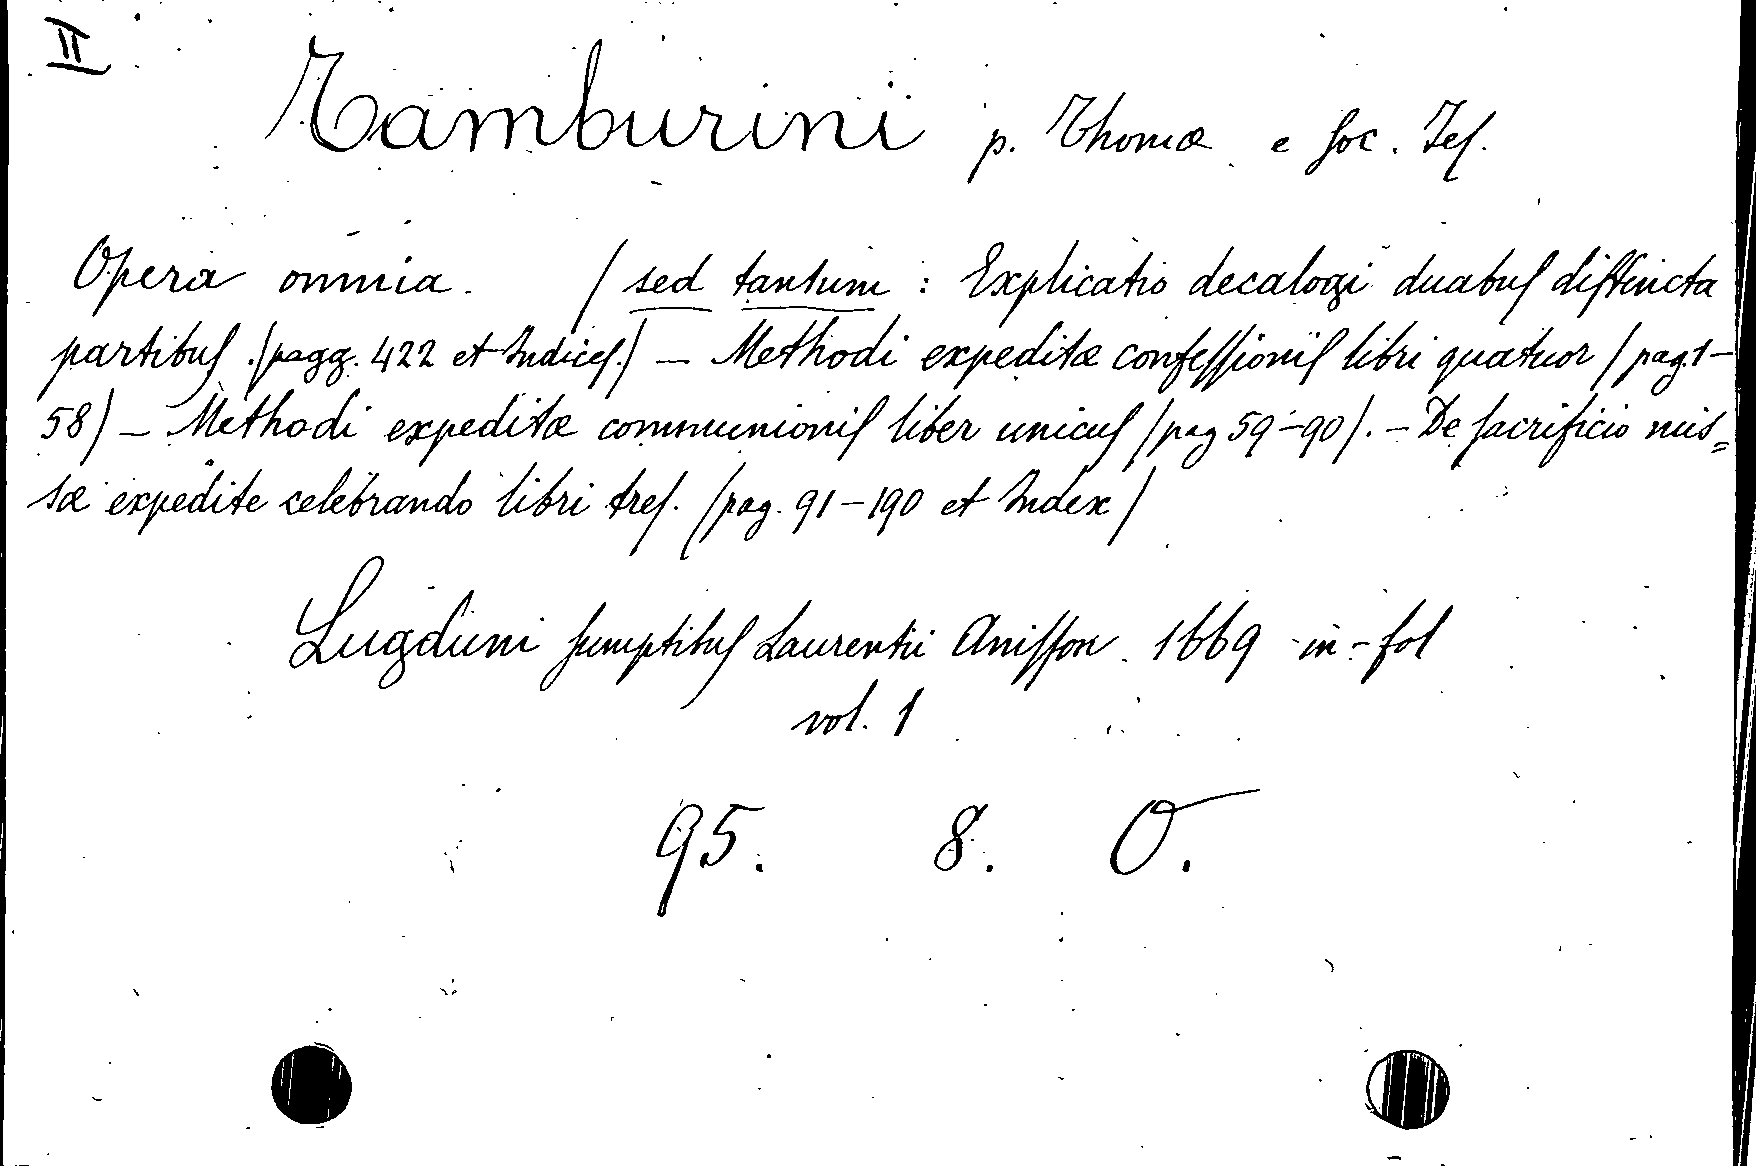 II
Tamburini p. Thomæ e Soc. Jeſ.
Opera omnia. (sed tantum: Explicatio decalogi duabuſ diſtincta
partibuſ. (pagg. 422 et Indiceſ.) – Methodi expeditæ confeſſioniſ libri quatuor (pag. 1–
58) – Methodi expeditæ communioniſ liber unicuſ (pag 59–90). – De ſacrificio mis=
sæ expedite celebrando libri treſ. (pag. 91–190 et Index)
Lugduni ſumptibuſ Laurentii Aniſſon. 1669 in-fol
vol. 1
95. 8. O.